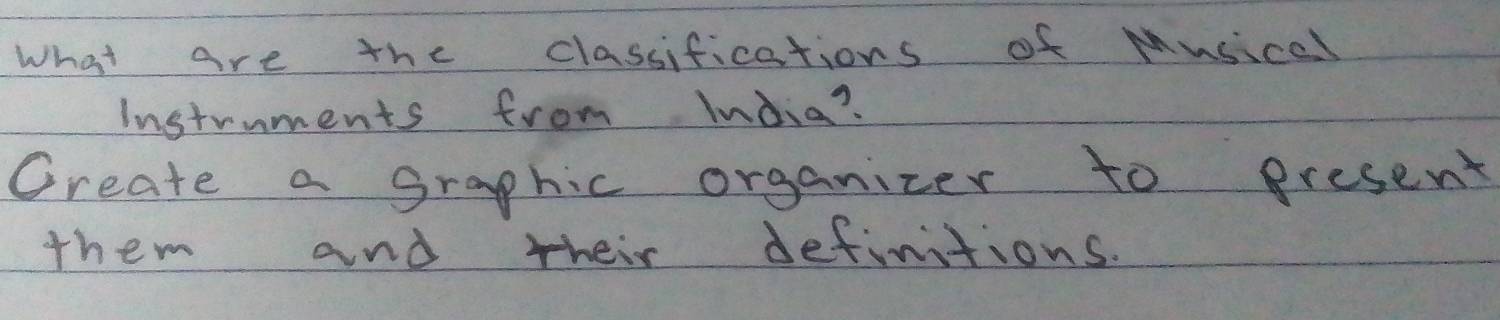 What are the classifications of Musical
Instruments from India?
Create a graphic organizer to present
them and their definitions.